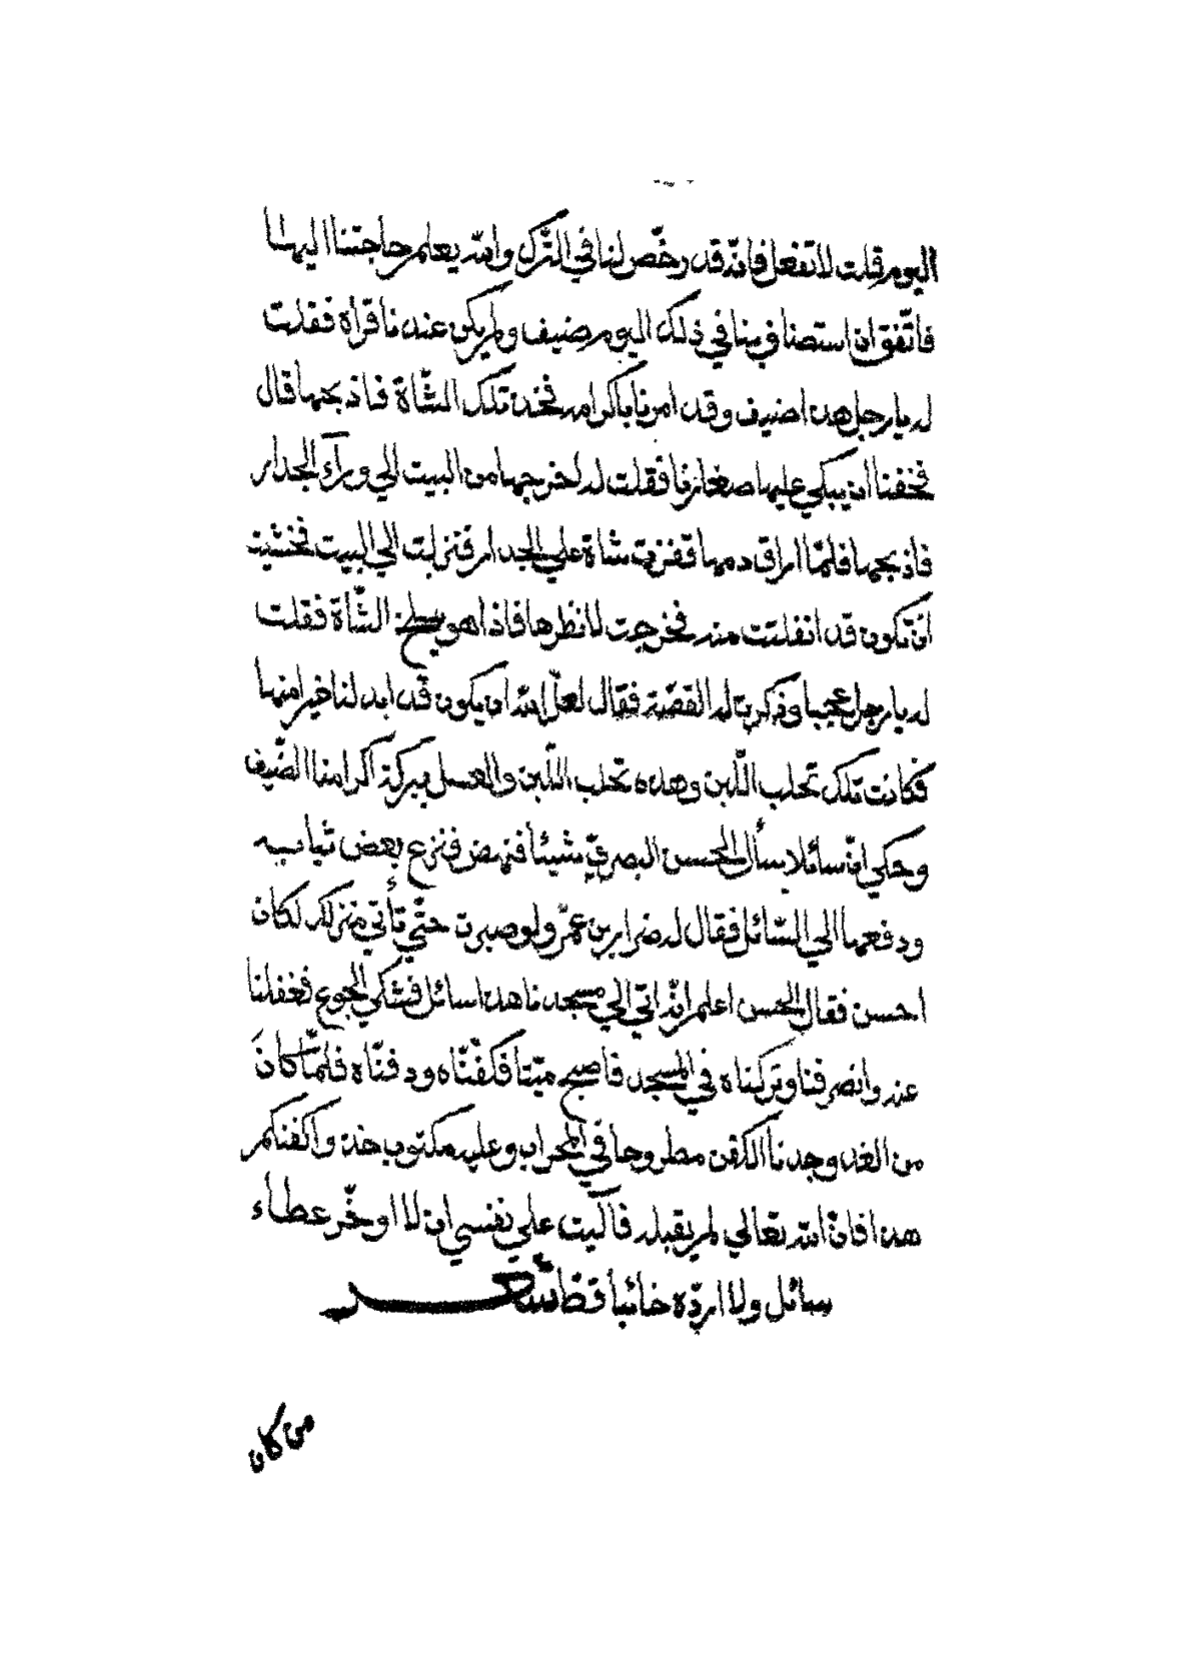 اليوم قلت لا تفعل فانّه قد رخّص لنا في التّرك والله يعلم حاجتنا اليها
فاتّفق ان استضافي بنا في ذلك اليوم ضيف ولم يكن عندنا قراه فقلت
له يا رجل هذا ضيف وقد امرنا باكرامه فخذ تلك الشّاة فاذبحها قال
فخفنا ان يبكي عليها صغارنا فقلت له اخرجها من البيت الي ورآء الجدار
فاذبحها فلمّا اراق دمها قفزت شاة علي الجدار فنزلت الي البيت فخشيت
ان تكون قد انفلتت منه فخرجت لانظرها فاذا هو يسلخ الشّاة فقلت
له يا رجل عجبا وذكرت له القصّة فقال لعلّ الله ان يكون قد ابدلنا خيرا منها
فكانت تلك تحلب اللّبن وهذه تحلب اللّبن والعسل ببركة اكرامنا الضّيف
وحكي انّ سائلا يسأل الحسن البصريّ شيئا فنهض فنزع بعض ثيابه
ودفعها الي السّائل فقال له ضرار بن عمرو لو صبرت حتّي تأتي منزلك لكان
احسن فقال الحسن اعلم انّه اتي الي مسجدنا هذا سائل فشكي الجوع فغفلنا
عنه وانصرفنا وتركناه في المسجد فاصبح ميّتا فكفّنّاه ودفنّاه فلمّا كانَ
من الغد وجدنا الكفن مطروحا في المحراب وعليه مكتوب خذوا كفنكم
هذا فانّ الله تعالي لم يقبله فآليت علي نفسي ان لا اوخّر عطاء
سائل ولا اردّه خائبا قط شعر
من كان